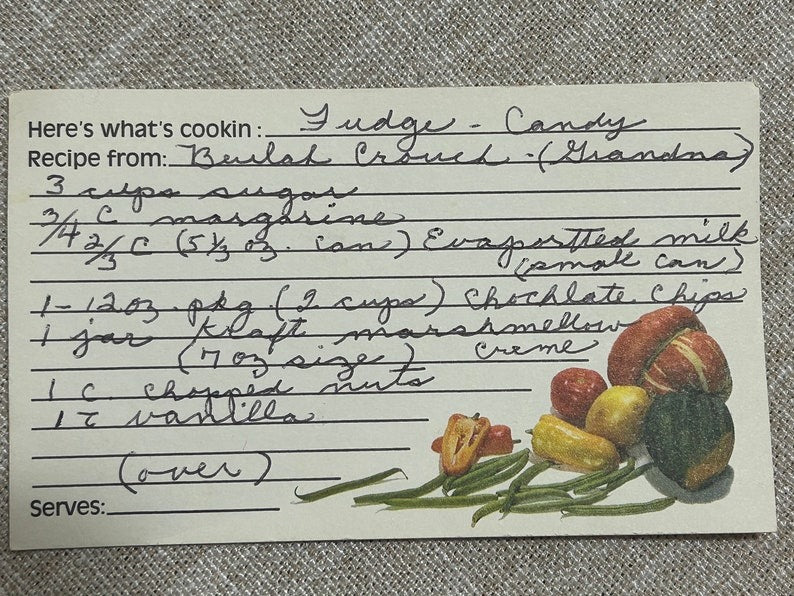 Here's what's cookin: Fudge - Candy
Recipe from: Beulah Crouch - (Grandma)
3 cups sugar
3/4 C margarine
2/3 C (5 1/3 oz. can) Evaportted milk
(small can)
1 - 12 oz. pkg (2 cups) Chochlate Chips
1 jar Kraft marshmellow
(7 oz size) creme
1 c. chopped nuts
1 t vanilla
(over)
Serves: